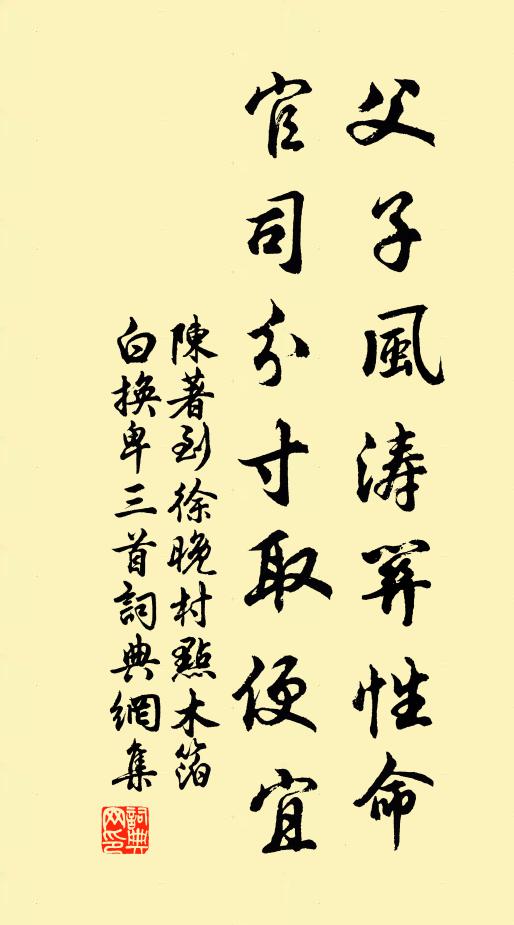 父子風濤關性命
官司分寸取便宜
陳著到徐晚村點木箔
白換卑三首詞典網集